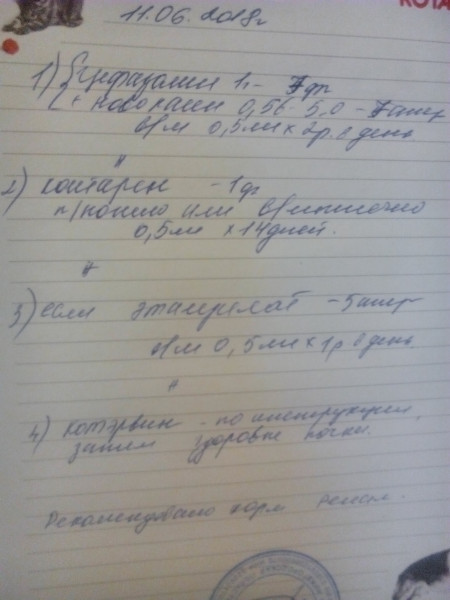 КОТА
11.06.2018г
1) Цефазолин 1,- 7фл
+ новокаин 0,5% 5,0 - 7амп
в/м 0,5мл х 2р. в день
2) кантарен - 1фл
п/кожно или в/мышечно
0,5мл х 14дней.
3) если этамзилат - 5амп
в/м 0,5мл х 1р. в день.
4) котэрвин - по инструкции,
затем здоровые почки.
Рекомендовано корм Ренал.